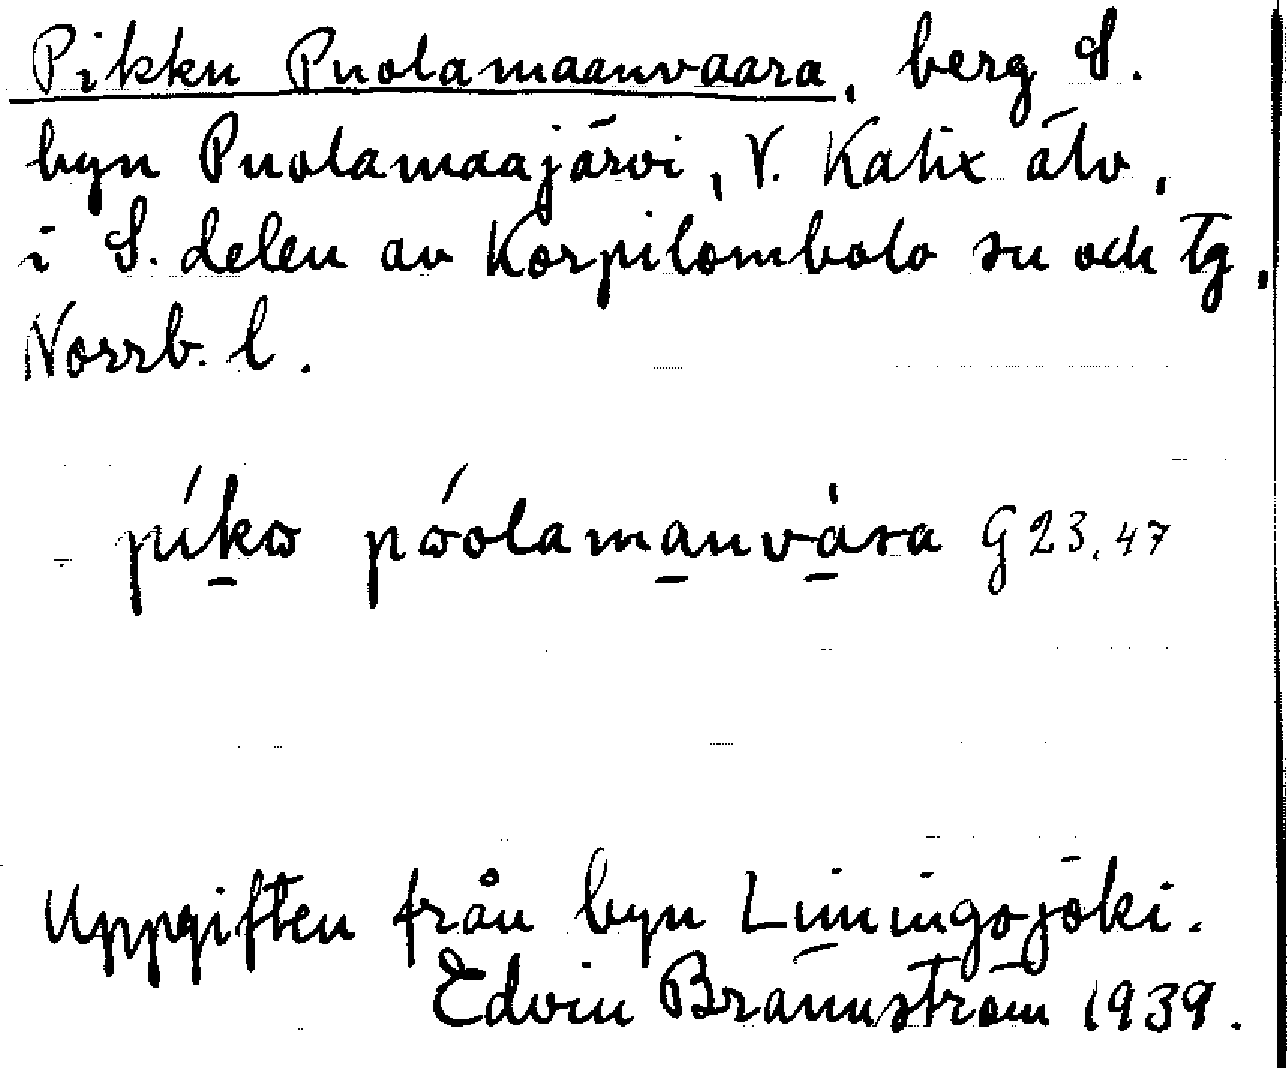 Pikku Puolamaanvaara, berg S.
byn Puolamaajärvi, V. Kalix älv,
i S. delen av Korpilombolo sn och tg,
Norrb. l.
píkω pωólamanvàra G 23.47
Uppgiften från byn Limingojoki.
Edvin Brännström 1939.